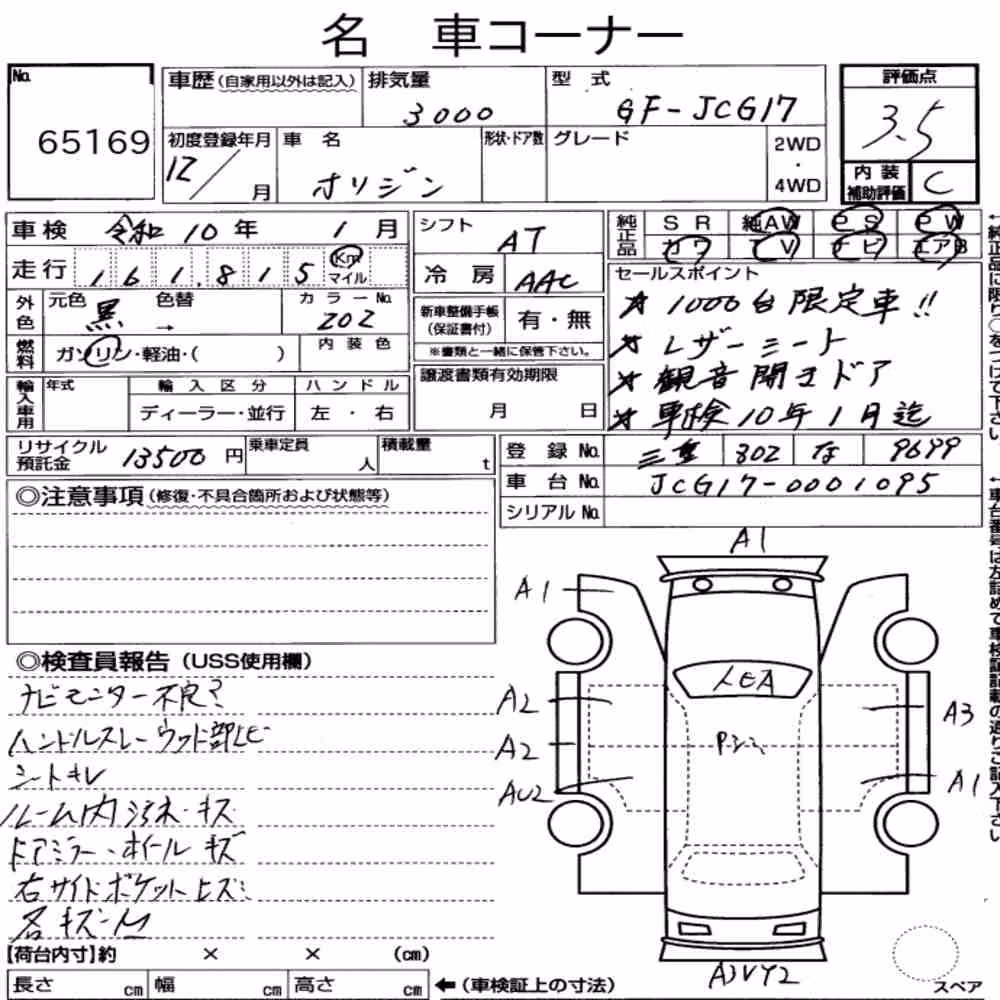 名 車コーナー
No.
65169
車歴(自家用以外は記入)
排気量
3000
型 式
GF-JCG17
評価点
3.5
初度登録年月
12/ 月
車 名
オリジン
形状・ドア数
グレード
2WD
・
4WD
内 装
補助評価
C
車検 令和 10年 1月
走行 161,815 Km
マイル
シフト AT
冷 房 AAC
純正品
SR 純AW PS PW
カワ TV ナビ エアB
外色
元色 黒 色替 →
カラーNo. 202
燃料
ガソリン・軽油・( )
内 装 色
新車整備手帳
(保証書付)
有・無
※書類と一緒に保管下さい。
セールスポイント
★1000台限定車!!
★レザーシート
★観音開きドア
★車検10年1月迄
輸入車用
年式
輸 入 区 分
ディーラー・並行
ハンドル
左 ・ 右
譲渡書類有効期限
月 日
リサイクル
預託金 13500円
乗車定員
人
積載量
t
登 録 No. 三重 302 な 9699
車 台 No. JCG17-0001095
シリアル No.
◎注意事項(修復・不具合箇所および状態等)
◎検査員報告(USS使用欄)
ナビモニター不良?
ハンドルスレ ウッド部ヒビ
シートキレ
ルーム内汚れ・キズ
ドアミラー・ホイール キズ
右サイドポケット
各キズ
A1
A1
A2
A2
AU2
A3
A1
【荷台内寸】約 × × (cm)
長さ cm
幅 cm
高さ cm
←(車検証上の寸法)
スペア
←純正品に限り○をつけて下さい
←車台番号は左詰めで車検証記載の通りご記入下さい